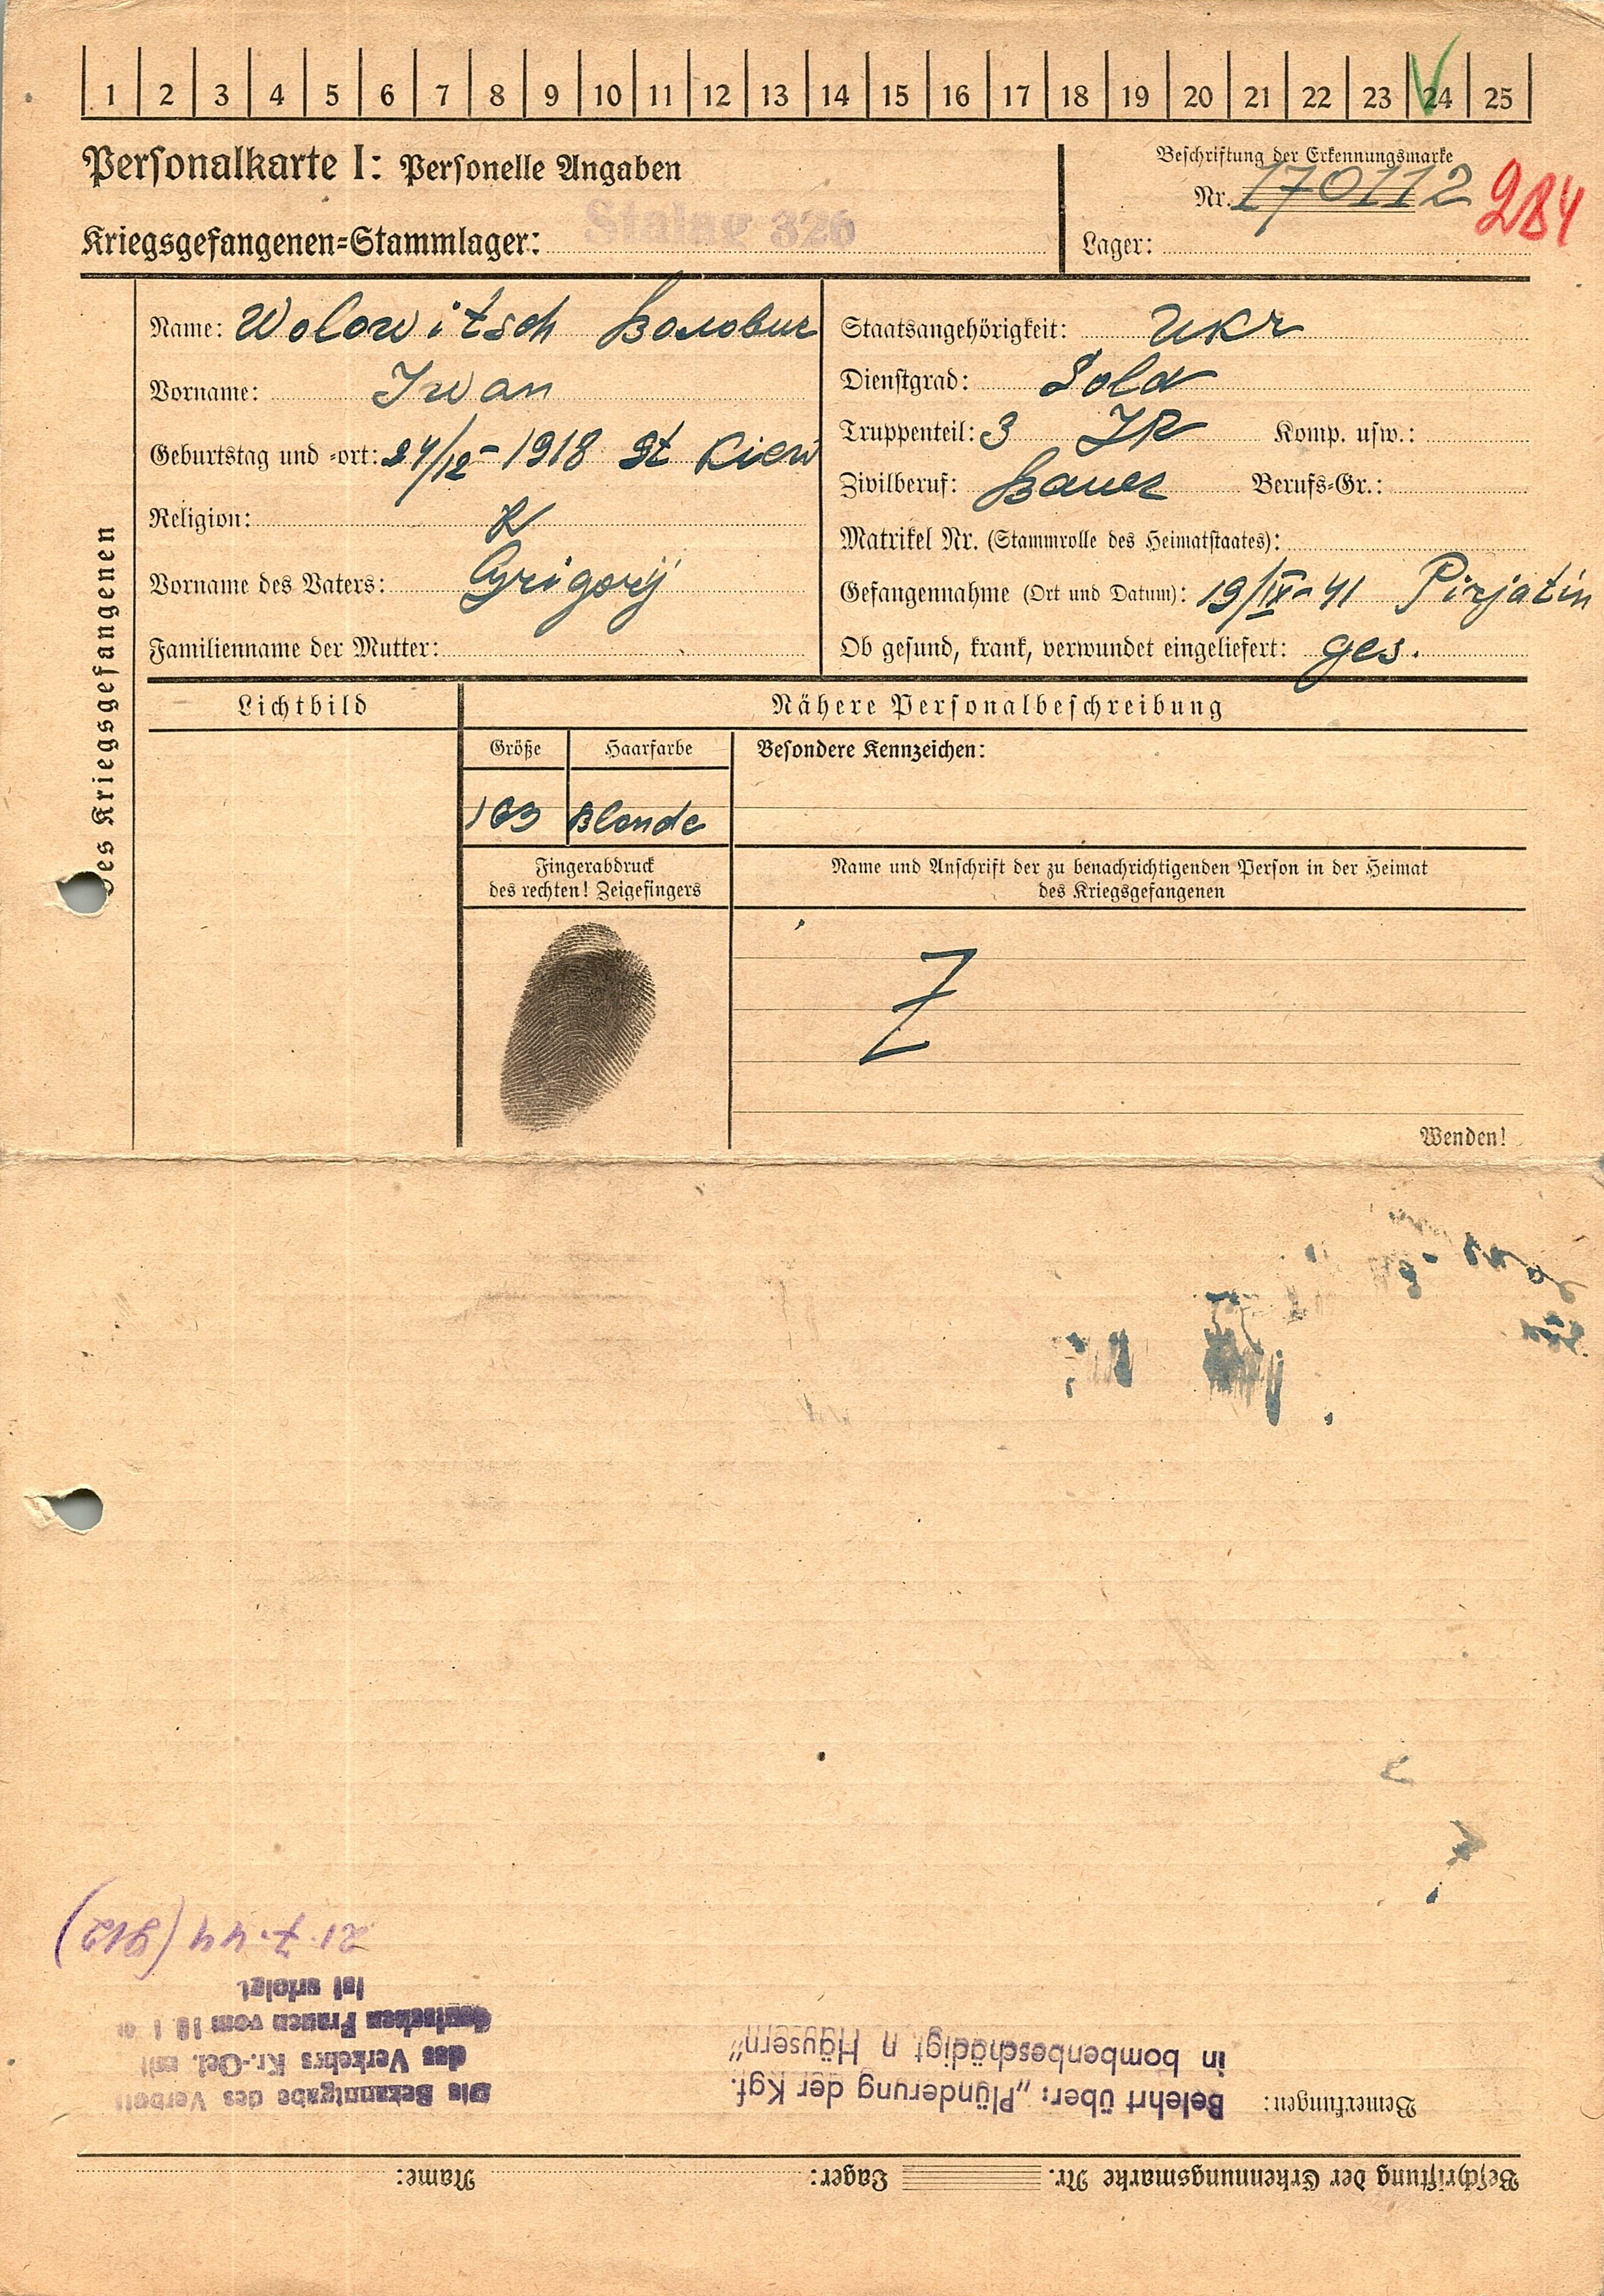 1 2 3 4 5 6 7 8 9 10 11 12 13 14 15 16 17 18 19 20 21 22 23 24 25
Personalkarte I: Personelle Angaben
Kriegsgefangenen=Stammlager: Stalag 326
Beschriftung der Erkennungsmarke
Nr. 170112 284
Lager:
des Kriegsgefangenen
Name: Wolowitsch Волович
Vorname: Iwan
Geburtstag und =ort: 24/12 - 1918 St Kiew
Religion: R
Vorname des Vaters: Grigorij
Familienname der Mutter:
Staatsangehörigkeit: Ukr
Dienstgrad: Sold
Truppenteil: 3 IR Komp. usw.:
Zivilberuf: Bauer Berufs=Gr.:
Matrikel Nr. (Stammrolle des Heimatstaates):
Gefangennahme (Ort und Datum): 19/IX - 41 Pirjatin
Ob gesund, krank, verwundet eingeliefert: ges.
Lichtbild
Nähere Personalbeschreibung
Größe Haarfarbe
163 Blonde
Besondere Kennzeichen:
Fingerabdruck
des rechten! Zeigefingers
Name und Anschrift der zu benachrichtigenden Person in der Heimat
des Kriegsgefangenen
Z
Wenden!
Beschriftung der Erkennungsmarke Nr. Lager: Name:
Bemerkungen:
Belehrt über: „Plünderung der Kgf.
in bombenbeschädigt n Häusern"
Die Bekanntgabe des Verbots
des Verkehrs Kr.-Gef. mit
deutschen Frauen vom
ist erfolgt
21.7.44 (912)